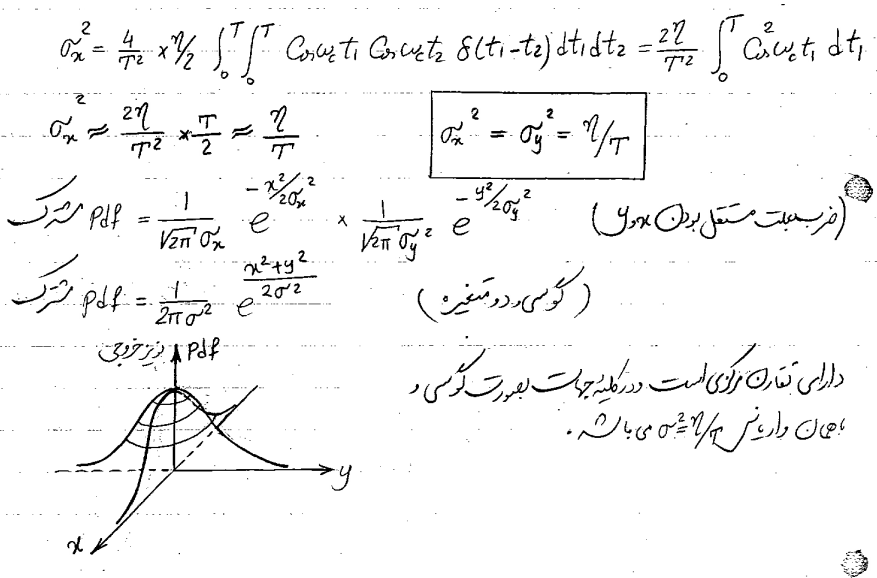 σx² = 4/T² × η/2 ∫₀ᵀ ∫₀ᵀ Cosωct₁ Cosωct₂ δ(t₁-t₂) dt₁dt₂ = 2η/T² ∫₀ᵀ Cos²ωct₁ dt₁
σx² ≈ 2η/T² × T/2 ≈ η/T
σx² = σy² = η/T
مشترک Pdf = 1/(√2π σx) e^(-x²/2σx²) × 1/(√2π σy²) e^(-y²/2σy²) (ضرب بعلت مستقل بودن x و y)
مشترک Pdf = 1/(2πσ²) e^((x²+y²)/(2σ²)) (گوسی دو متغیره)
Pdf نویز خروجی
دارای تقارن مرکزی است و در کلیه جهات بصورت گوسی و
با همان واریانس σ² = η/T می باشد.
y
x